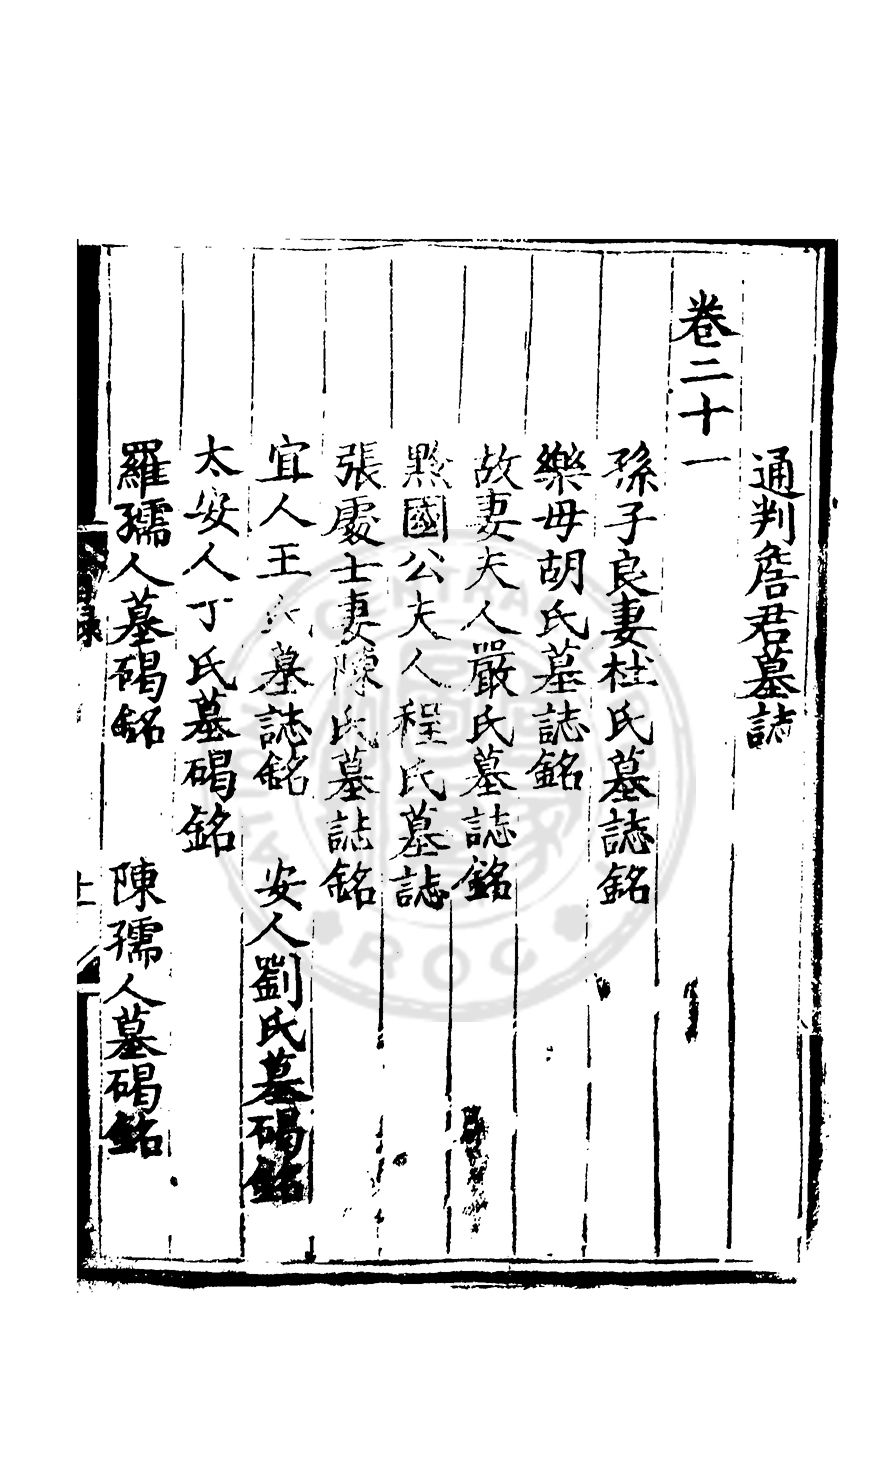 通判詹君墓誌
卷二十一
孫子良妻杜氏墓誌銘
樂母胡氏墓誌銘
故妻夫人嚴氏墓誌銘
黟國公夫人程氏墓誌
張處士妻陳氏墓誌銘
宜人王氏墓誌銘 安人劉氏墓碣銘
太安人丁氏墓碣銘
羅孺人墓碣銘 陳孺人墓碣銘